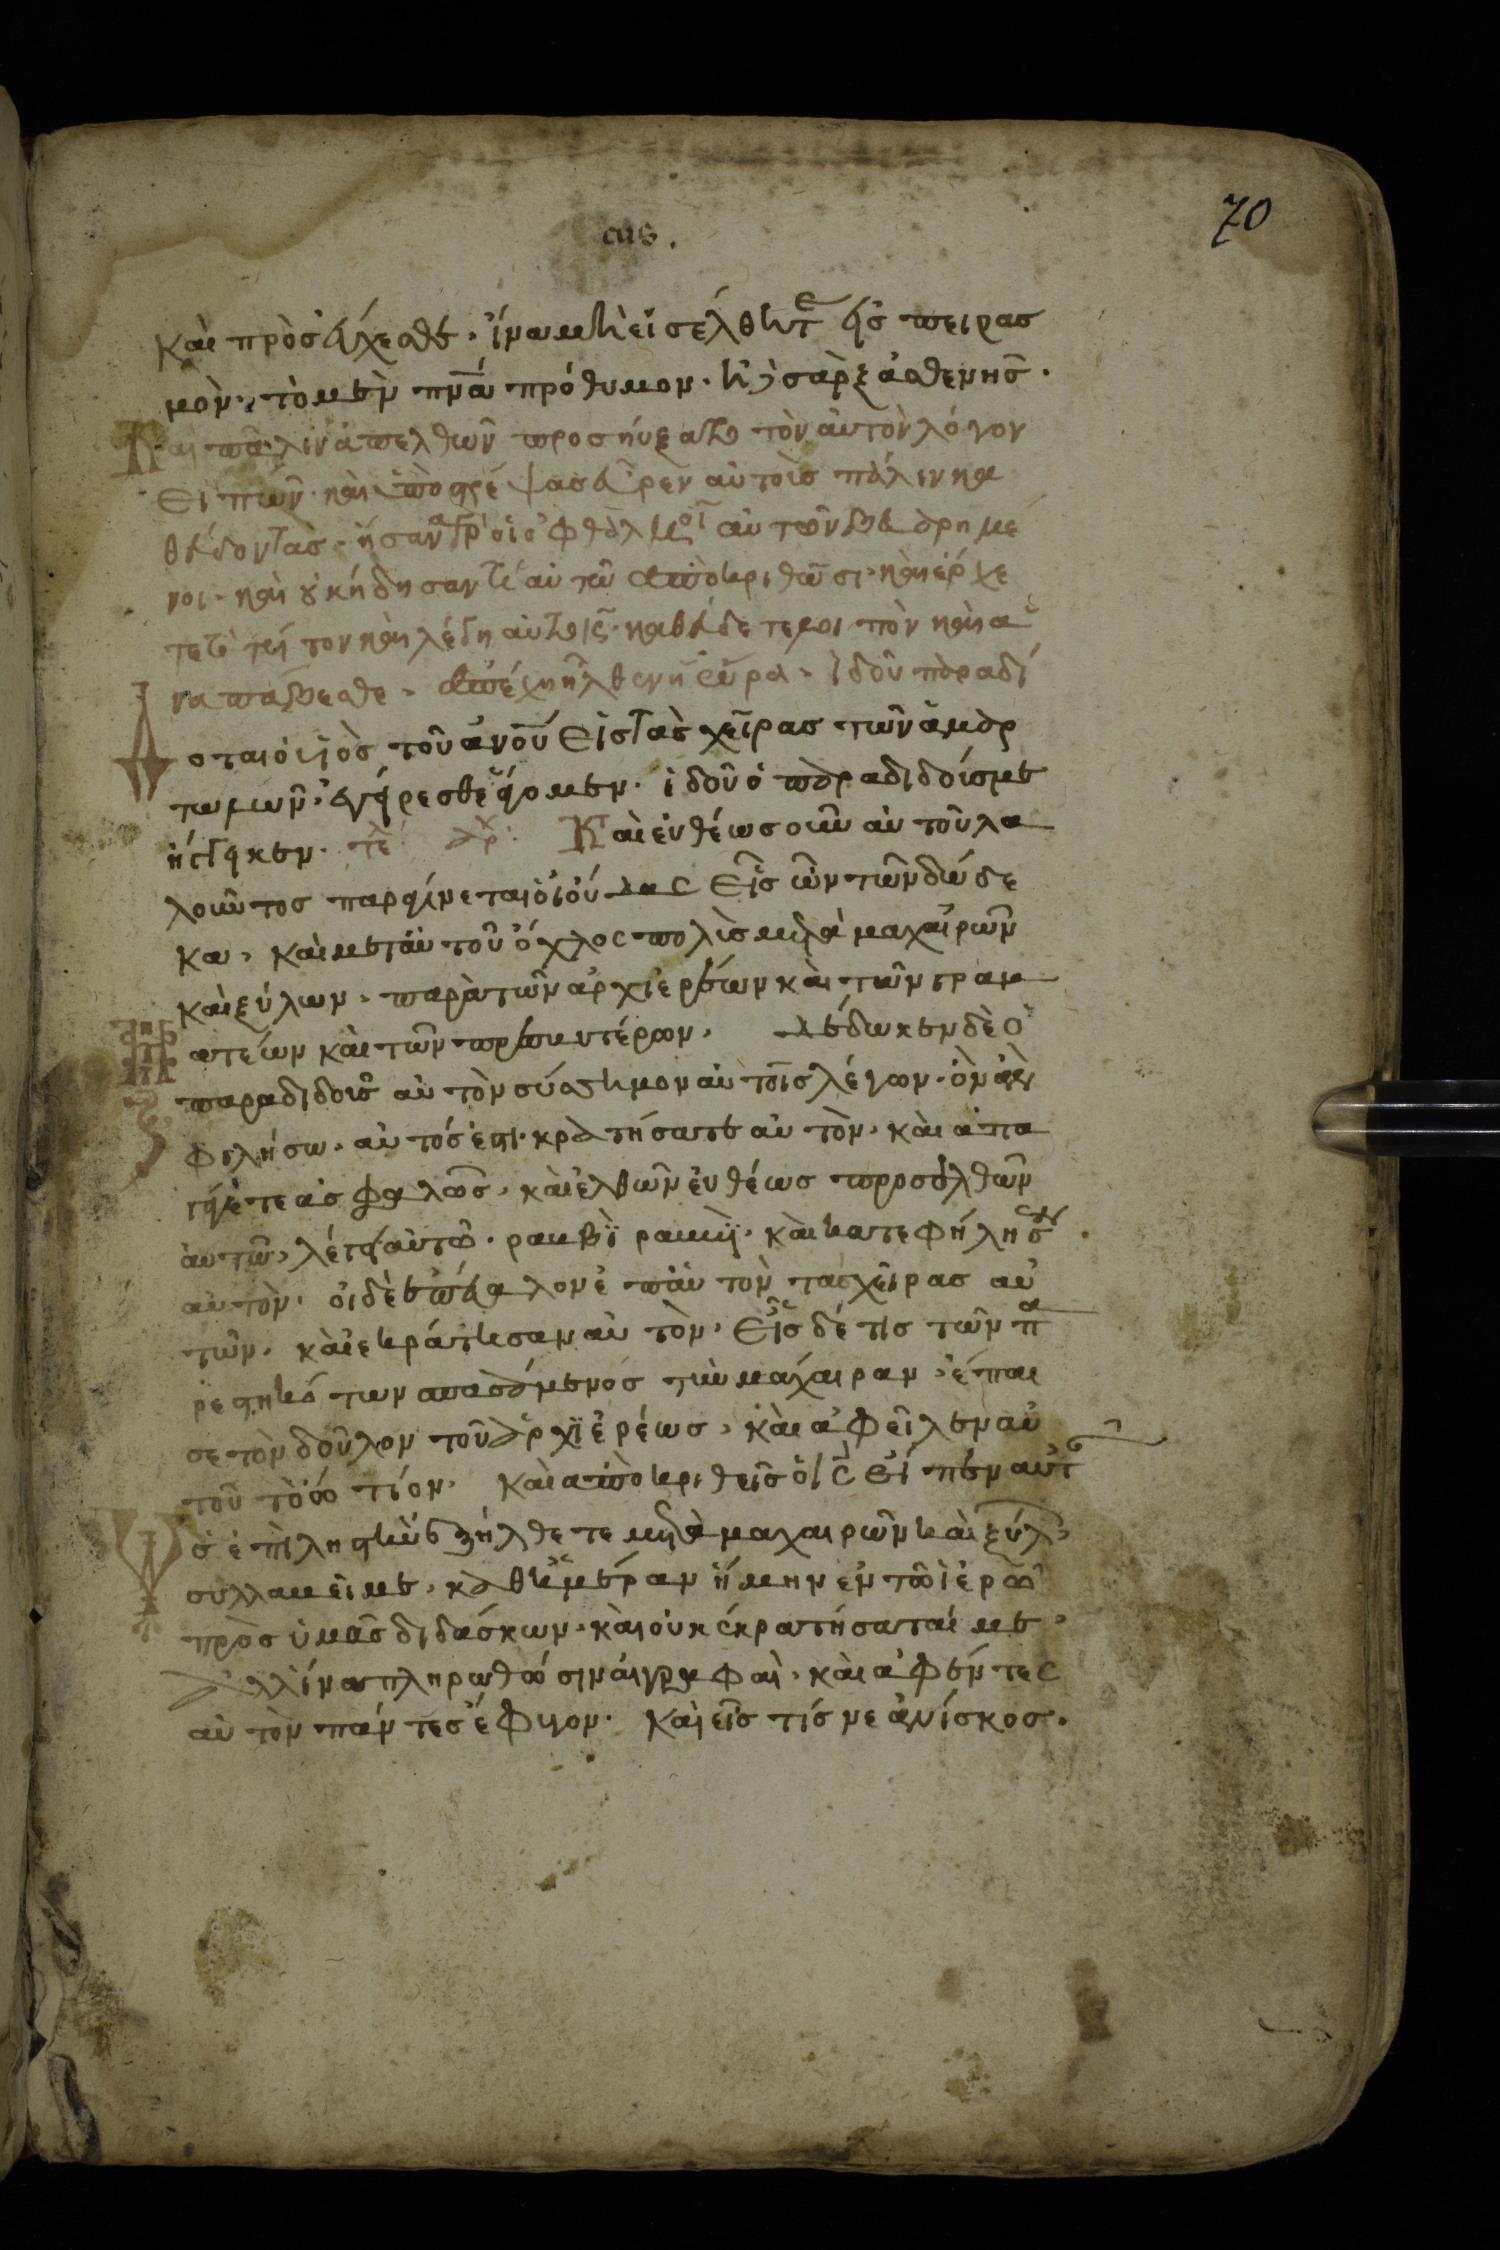 70
και προσέυχεσθέ. ίνα μὴ εἰσέλθητε εἰς πειρας
μὸν. τὸ μὲν πν̅α πρόθυμον. ἡ δὲ σὰρξ ἀσθενησ.
Και πάλιν ἀπελθὼν προσηύξατο τὸν αὐτὸν λόγον
ειπων. και ὑποστρέψας εὗρεν αὐτοὺσ πάλιν κα
θέυδοντας. ἦσαν γὰρ οἱ ὀφθαλμοὶ αὐτῶν βεβαρημέ
νοι. και οὐκ ήδησαν τί αὐτῶ ἀποκριθῶσι. και ἔρχε
τε τὸ τρίτον και λέγη αὐτοῖς. καθέυδετε λοιπὸν και ἀ
ναπάυεσθε. ἀπέχη ἦλθεν ἡ ὥρα. ἰδοὺ παραδί
δοται ὁ υἱὸσ τοῦ ἀν̅ο̅υ εἰς τὰς χεῖρας τῶν ἁμαρ
τωλῶν. ἐγείρεσθε ἄγομεν. ἰδοῦ ὁ παραδιδούς με
ήγγικεν. τε αρχ Και ἐυθέως οὖν αὐτοῦ λα
λοῦντος παραγίνεται ὁ ἰούδας εἷς ὢν τῶν δώδε
κα. και μετ' αὐτοῦ όχλος πολὶσ μετὰ μαχαιρῶν
και ξύλων. παρὰ τῶν ἀρχιερέων και τῶν γραμ
ματέων και τῶν πρεσβυτέρων. δέδωκεν δὲ ὁ
παραδιδοὺς αὐτὸν σύσσημον αὐτοῖς λέγων. ὃν ἀν
φιλήσω. αὐτός ἐστι. κρατήσατε αὐτὸν. και ἀπα
γάγετε ἀσφαλῶς. και ἐλθὼν ἐυθέως προσελθὼν
ἀυτῶ, λέγει αὐτῶ. ραββὶ ραββί. και κατεφήλησεν
αὐτὸν. οἱ δὲ ἐπέβαλον ἐπ' αὐτὸν τὰς χεῖρας αὐ
τῶν. και ἐκράτησαν αὐτὸν. εἷς δέ τις τῶν πα
ρεστηκότων σπασάμενος τὴν μάχαιραν. έπαι
σε τὸν δοῦλον τοῦ ἀρχιερέως. και ἀφεῖλεν αὐ
τοῦ τὸ ὠτίον. Και αποκριθεῖς ὁ ἰ̅ς̅ εἶπεν αὐτοῖς
ὡς ἐπὶ ληστὴν ἐξήλθετε μετὰ μαχαιρῶν και ξύλων
συλλαβεῖν με. καθ' ἡμέραν ήμην ἐν τῶ ἱερῶ
πρὸς ὑμᾶς διδάσκων. και οὐκ ἐκρατήσαταί με.
ἀλλ' ίνα πληρωθῶσιν αἱ γραφαὶ. και ἀφέντες
αὐτὸν πάντες έφυγον. Και εἷς τίς νεανίσκος.